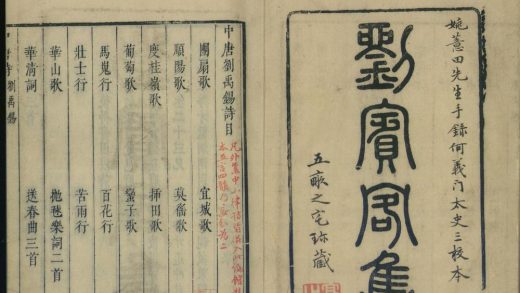 姚薏田先生手錄何義門太史三校本
劉賓客集
五畝之宅珍藏
中唐劉禹錫詩目
團扇歌 宜城歌
順陽歌 莫徭歌
度桂嶺歌 插田歌
葡萄歌 蠻子歌
馬嵬行 百花行
壯士行 苦雨行
華山歌 拋毬樂詞二首
華清詞 送春曲三首
中唐詩劉禹錫